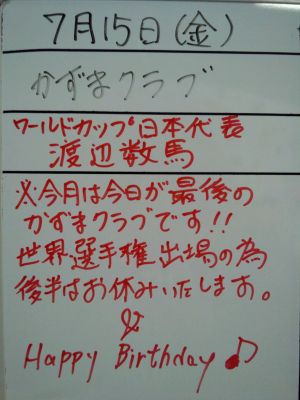 7月15日(金)
かずまクラブ
ワールドカップ日本代表
渡辺数馬
※今月は今日が最後の
かずまクラブです!!
世界選手権出場の為
後半はお休みいたします。
&
Happy Birthday♪